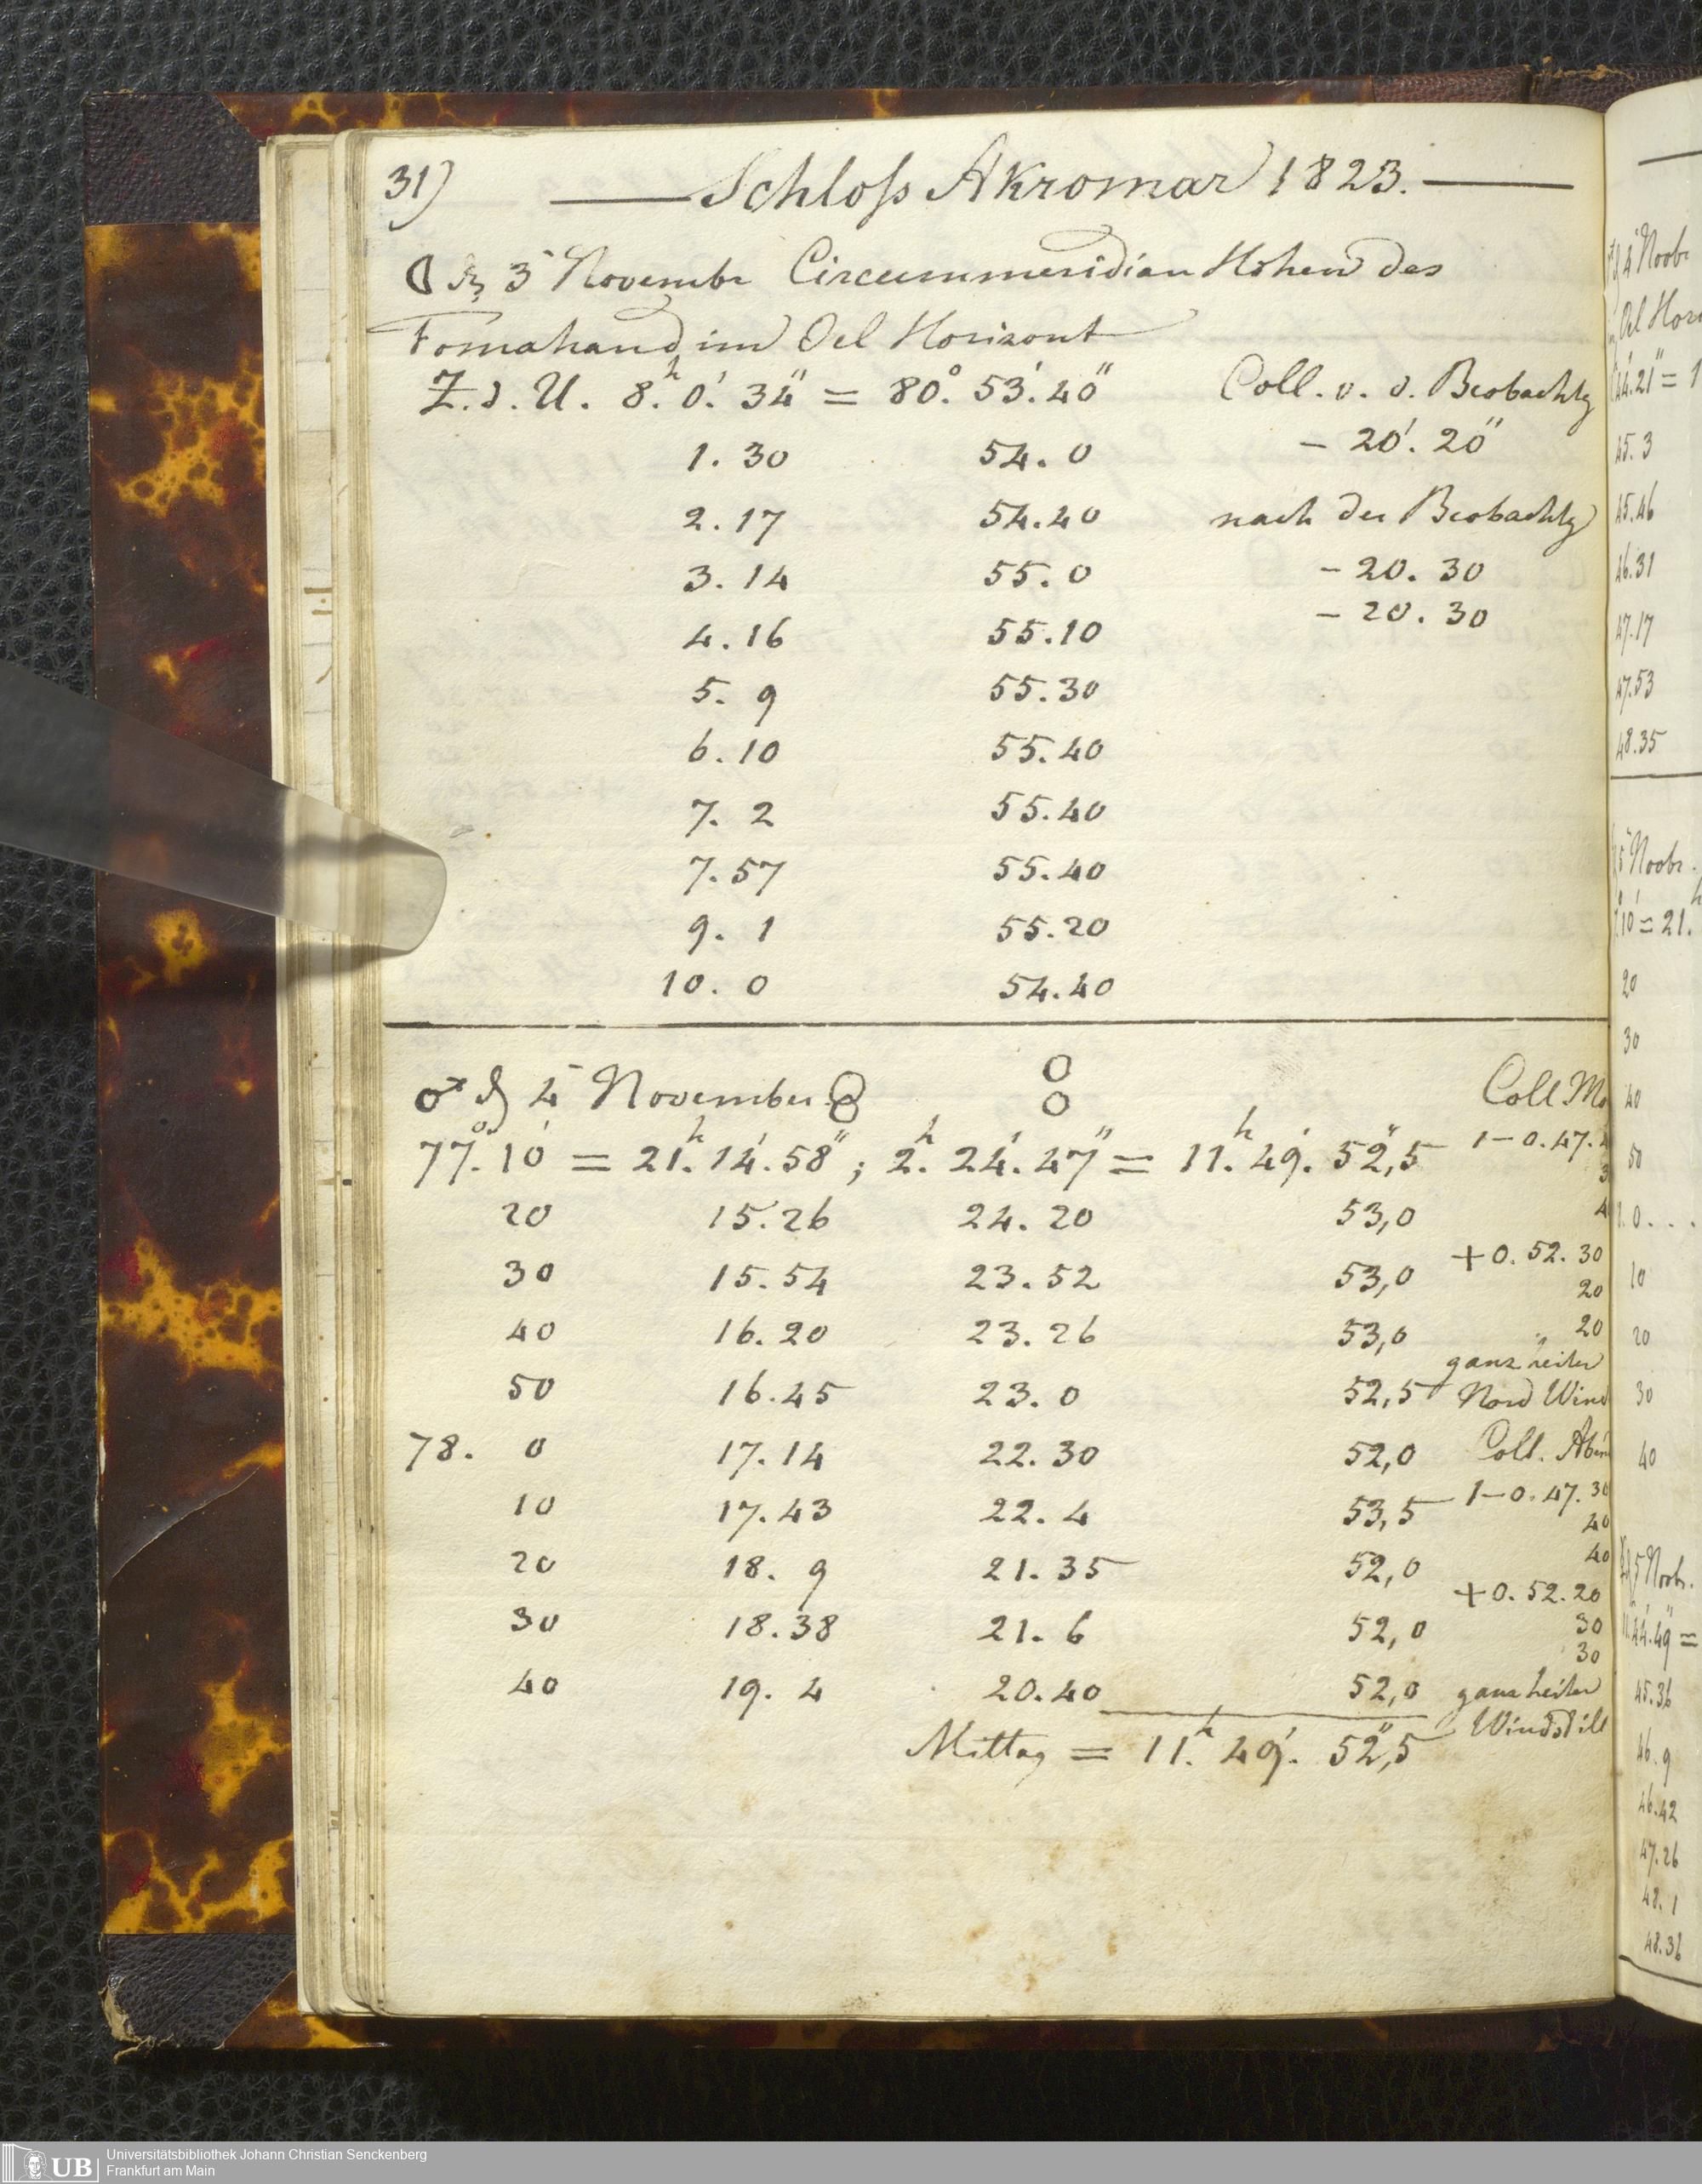 31)
Schloß Akromar 1823.
☽ d 3t Novembr Circummeridian Höhen des
Fomahand im Oel Horizont
Z.d.U. 8.h 0.' 34" = 80.° 53.' 40" Coll. v. d. Beobachtg
1. 30 54. 0 – 20'. 20"
2. 17 54. 40 nach der Beobachtg
3. 14 55. 0 – 20. 30
4. 16 55. 10 – 20. 30
5. 9 55. 30
6. 10 55. 40
7. 2 55. 40
7. 57 55. 40
9. 1 55. 20
10. 0 54. 40
♂ d 4t November
Coll Mo
77.° 10' = 21.h 14.' 58"; 2.h 24.' 47" = 11.h 49.' 52,"5 1–0.47.
20 15. 26 24. 20 53,0
30 15. 54 23. 52 53,0 +0. 52. 30
20
40 16. 20 23. 26 53,0 20
ganz heiter
50 16. 45 23. 0 52,5 Nord Wind
78. 0 17. 14 22. 30 52,0 Coll. Aben
10 17. 43 22. 4 53,5 1–0. 47. 30
40
20 18. 9 21. 35 52,0 40
+0. 52. 20
30 18. 38 21. 6 52,0 30
30
40 19. 4 20. 40 52,0 ganz heiter
Windstill
Mittag = 11.h 49.' 52,"5
4t Novbr
Oel Hori
44.21" = 1
45. 3
45.46
46.31
47.17
47.53
48.35
5t Novbr.
10' = 21.h
20
30
40
50
0 . . .
10
20
30
40
5 Novbr.
11.h 44.' 49" =
45.36
46. 9
46.42
47.26
48. 1
48.36
UB
Universitätsbibliothek Johann Christian Senckenberg
Frankfurt am Main